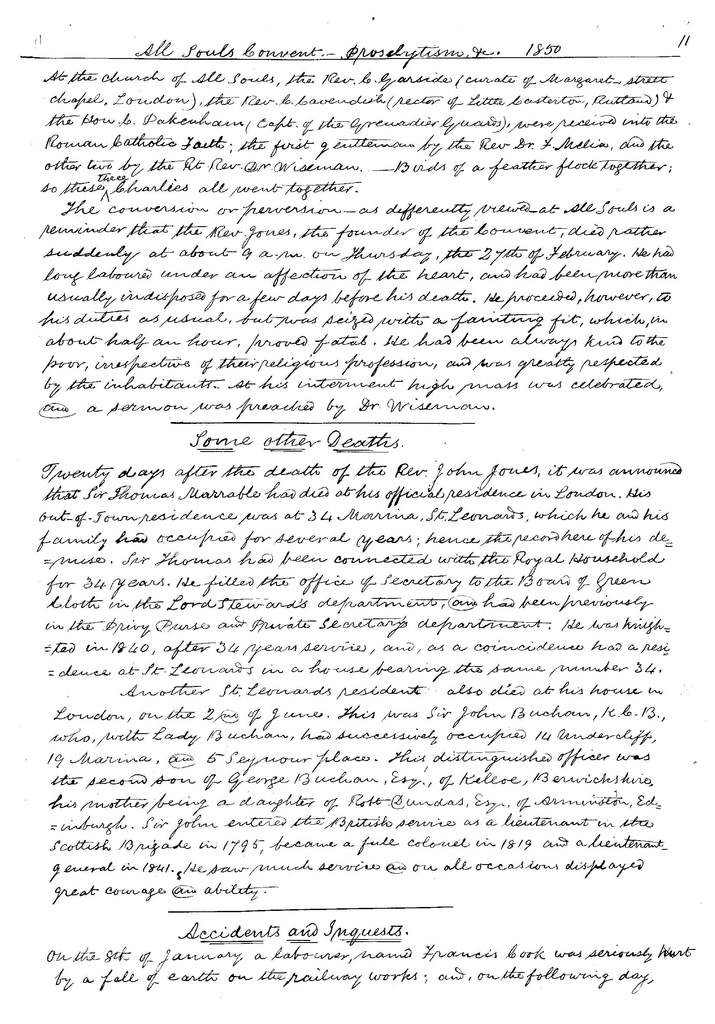 All Souls Convent. – Proselytism, &c. 1850 11
At the church of All Souls, the Rev. C. Garside (curate of Margaret-street
chapel, London), the Rev. C. Cavendish (rector of Little Casterton, Rutland) &
the Hon. C. Pakenham (Capt. of the Grenadier Guards), were received into the
Roman Catholic Faith; the first gentleman by the Rev. Dr. F. Melia, and the
other two by the Rt Rev. Dr. Wiseman. — Birds of a feather flock together;
so these three Charlies all went together.
The conversion or perversion — as differently viewed — at All Souls is a
reminder that the Rev. Jones, the founder of the Convent, died rather
suddenly at about 9 a.m. on Thursday, the 27th of February. He had
long laboured under an affection of the heart, and had been more than
usually indisposed for a few days before his death. He proceeded, however, to
his duties as usual, but was seized with a fainting fit, which, in
about half an hour, proved fatal. He had been always kind to the
poor, irrespective of their religious profession, and was greatly respected
by the inhabitants. At his interment high mass was celebrated,
and a sermon was preached by Dr. Wiseman.
Some other Deaths.
Twenty days after the death of the Rev. John Jones, it was announced
that Sir Thomas Marrable had died at his official residence in London. His
out-of-Town residence was at 34 Marina, St. Leonards, which he and his
family had occupied for several years; hence the record here of his de=
=mise. Sir Thomas had been connected with the Royal Household
for 34 years. He filled the office of Secretary to the Board of Green
Cloth in the Lord Steward's department, and had been previously
in the Privy Purse and Private Secretary's department. He was knigh=
=ted in 1840, after 34 years service, and, as a coincidence had a resi
=dence at St Leonards in a house bearing the same number 34.
Another St. Leonards resident also died at his house in
London, on the 2nd of June. This was Sir John Buchan, K.C.B.,
who, with Lady Buchan, had successively occupied 14 Undercliff,
19 Marina, and 5 Seymour place. This distinguished officer was
the second son of George Buchan, Esq., of Kelloe, Berwickshire,
his mother being a daughter of Robt Dundas, Esq., of Arminston, Ed=
=inburgh. Sir John entered the British service as a lieutenant in the
Scottish Brigade in 1795, became a full colonel in 1819 and a lieutenant-
general in 1841. He saw much service and on all occasions displayed
great courage an ability.
Accidents and Inquests.
On the 8th of January a labourer, named Francis Cook was seriously hurt
by a fall of earth on the railway works; and, on the following day,